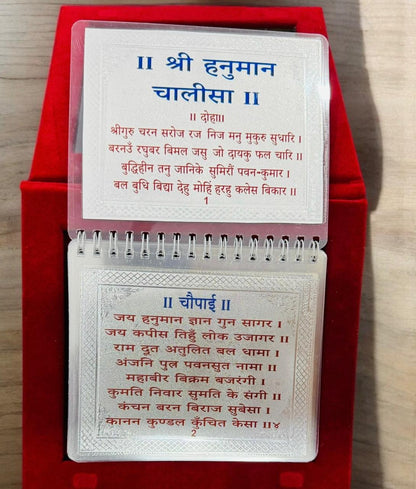 ॥ श्री हनुमान
चालीसा ॥
॥ दोहा॥
श्रीगुरु चरन सरोज रज निज मनु मुकुरु सुधारि ।
बरनउँ रघुबर बिमल जसु जो दायकु फल चारि ॥
बुद्धिहीन तनु जानिके सुमिरौं पवन-कुमार ।
बल बुधि बिद्या देहु मोहिं हरहु कलेस बिकार ॥
1
॥ चौपाई ॥
जय हनुमान ज्ञान गुन सागर ।
जय कपीस तिहुँ लोक उजागर ॥
राम दूत अतुलित बल धामा ।
अंजनि पुत्र पवनसुत नामा ॥
महाबीर बिक्रम बजरंगी ।
कुमति निवार सुमति के संगी ॥
कंचन बरन बिराज सुबेसा ।
कानन कुण्डल कुँचित केसा ॥४
2